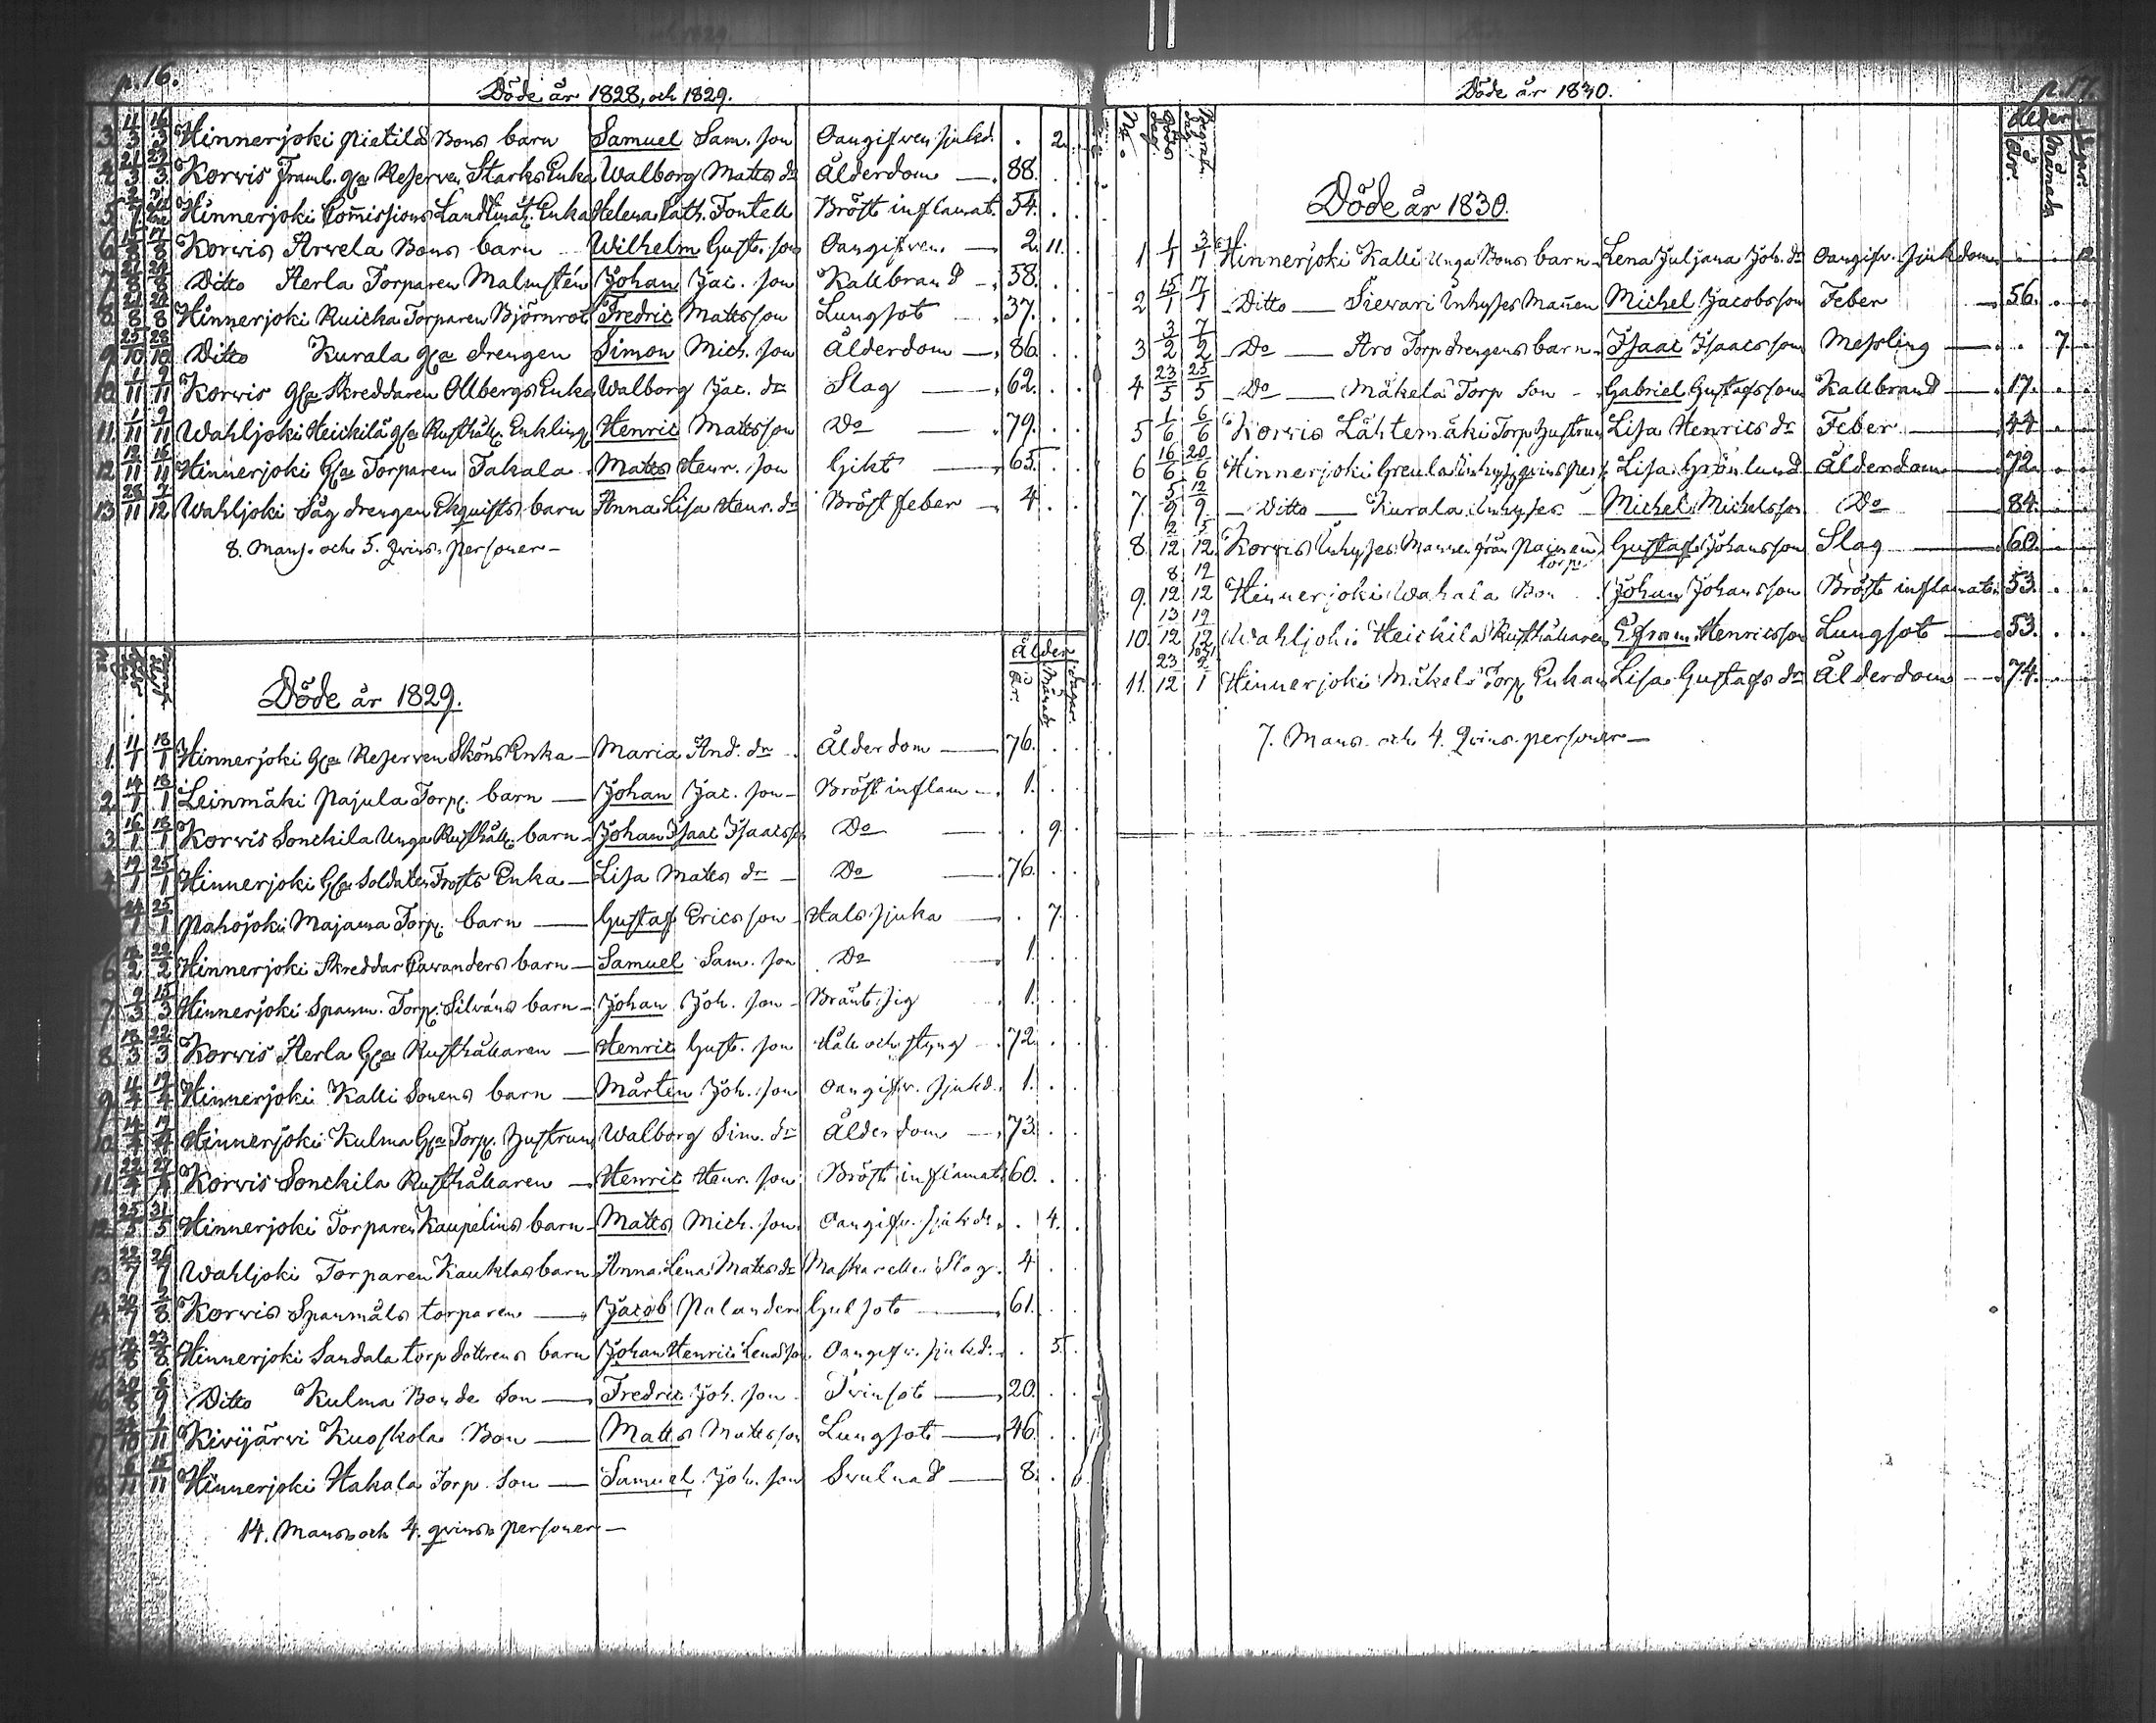 p. 16.
Döde år 1828, och 1829.
3. 11/3 16/3 Hinnerjoki Pietilä Bons barn Samuel Sam. son Oangifven sjukd. . 2.
4 21/3 23/3 Korvis Framl. Gla Reserven Starks Enka Walborg Matts dr Ålderdom — 88. . .
5 Hinnerjoki Comissions Landtmät. Enka Helena Cath. Fontell Bröst inflamat. 54. . .
6 15/8 17/8 Korvis Arvela Bons barn Wilhelm Gust. son Oangifven — 2. 11. .
7 Ditto Herla Torparen Malmstén Johan Jac. son Kallbrand — 58. . .
8. 21/8 24/8 Hinnerjoki Ruicka Torparen Björnrot Fredric Mattsson Lungsot — 37. . .
9 25/10 28/10 Ditto Kurala Gla drengen Simon Mich. son Ålderdom — 86. . .
10 1/11 9/11 Korvis Gla Skreddaren Ollbergs Enka Walborg Jac. dr Slag — 62. . .
11. 1/11 2/11 Wahljoki Heickilä Gla Rusthåll. Enkling Henric Mattsson Do — 79. . .
12 12/11 16/11 Hinnerjoki Gla Torparen Takala Matts Henr. son Gikt — 65. . .
13 28/11 7/12 Wahljoki Såg drengen Ekquists barn Anna Lisa Henr. dr Bröst feber — 4. . .
8. Mans. och 5. Qvins. personer —
Ålder
år. Månader dagar.
Döde år 1829.
1. 11/1 18/1 Hinnerjoki Gla Reserven Sköns Enka — Maria And. dr Ålderdom — 76. . .
2. 14/1 18/1 Leinmäki Pajula Torp. barn — Johan Jac. son — Bröst inflam — 1. . .
3 16/1 18/1 Korvis Sonckila Unga Rusthåll. barn — Johan Isaac Isaacsson Do — . 9. .
4 19/1 25/1 Hinnerjoki Gla Soldaten Frosts Enka — Lisa Matts dr — Do — 76. . .
24/1 25/1 Nahojoki Majama Torp. barn — Gustaf Ericsson — Halssjuka — . 7. .
6 22/2 Hinnerjoki Skreddar Cavanders barn — Samuel Sam. son Do — 1. . .
7 9/3 15/3 Hinnerjoki Spanm. Torp. Silvans barn — Johan Joh. son — Bränt sig 1. . .
8. 18/3 22/3 Korvis Herla Gla Rusthållaren — Henric Gust. son Håll och styng — 72. . .
9 11/4 19/4 Hinnerjoki Kalli Sonens barn — Mårten Joh. son Oangifv. sjukd. 1. . .
10 14/4 19/4 Hinnerjoki Kulma Gla Torp. Hustrun Walborg Sim. dr Ålderdom — 73. . .
11 22/4 27/4 Korvis Sonckila Rusthållaren — Henric Henr. son Bröst inflamat. 60. . .
12 25/5 31/5 Hinnerjoki Torparen Kaupelins barn — Matts Mich. son Oangifv. sjukd. . 4. .
13 22/7 26/7 Wahljoki Torparen Kauklas barn Anna Lena Matts dr Maskar eller Slag. 4 . .
14 30/7 2/8 Korvis Spanmåls torparen — Jacob Palander Gulsot — 61. . .
15 23/8 Hinnerjoki Sandala torp dottrens barn Johan Henric Lenasson. Oangifv. sjukd. . 5. .
16 30/8 6/9 Ditto Kulma Bonde Son — Fredric Joh. son Tvinsot — 20. . .
17 Kivijärvi Kuoskola Bon — Matts Mattsson Lungsot — 46. . .
18 6/11 15/11 Hinnerjoki Hakala Torp. Son — Samuel Joh. son Svulnad — 8. . .
14. Mans och 4. qvins personer —
Döde år 1830.
p. 17.
No. Döds dag. Begrafn. dag.
Ålder
år. Månader dagar.
Döde år 1830.
1 1/1 3/1 Hinnerjoki Kalli Unga Bons barn — Lena Juljana Joh. dr Oangifv. sjukdom . . 12
2 15/1 17/1 — Ditto — Sievari Inhyses Mannen Michel Jacobsson Feber — 56. . .
3 3/2 7/2 — Do — Aro Torp drengens barn — Isaac Isaacsson Messling — . 7. .
4 23/5 25/5 — Do — Mäkelä Torp Son — Gabriel Gustafsson Kallbrand — 17. . .
5 1/6 6/6 Korvis Lähtemäki Torp. Hustrun Lisa Henrics dr Feber — 44 . .
6 16/6 20/6 Hinnerjoki Greula Inhys. qvins pers. Lisa Grönlund Ålderdom — 72 . .
7. 5/9 12/9 — Ditto — Kurala Inhyses — Michel Michelsson Do — 84. . .
8. 2/12 5/12 Korvis Inhyses Mannen från Painen torp Gustaf Johansson Slag — 60 . .
9. 8/12 12/12 Hinnerjoki Wahala Bon Johan Johansson Bröst inflamation 53. . .
10. 13/12 19/12 Wahljoki Heickilä Rusthållaren Efraim Henricsson Lungsot — 53. . .
11. 23/12 1831 2/1 Hinnerjoki Mäkelä Torp. Enkan Lisa Gustafs dr Ålderdom — 74. . .
7. Mans. och 4. Qvins. personer —